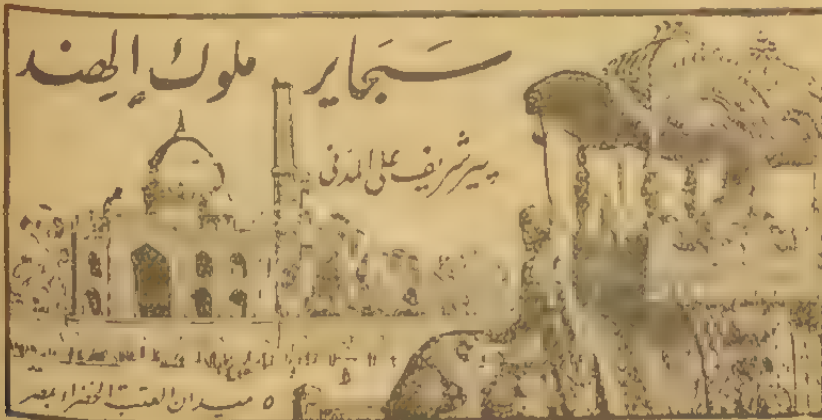 سجاير ملوك الهند
بيير شريف على المدنى
٥ ميدان العتبة الخضراء بمصر